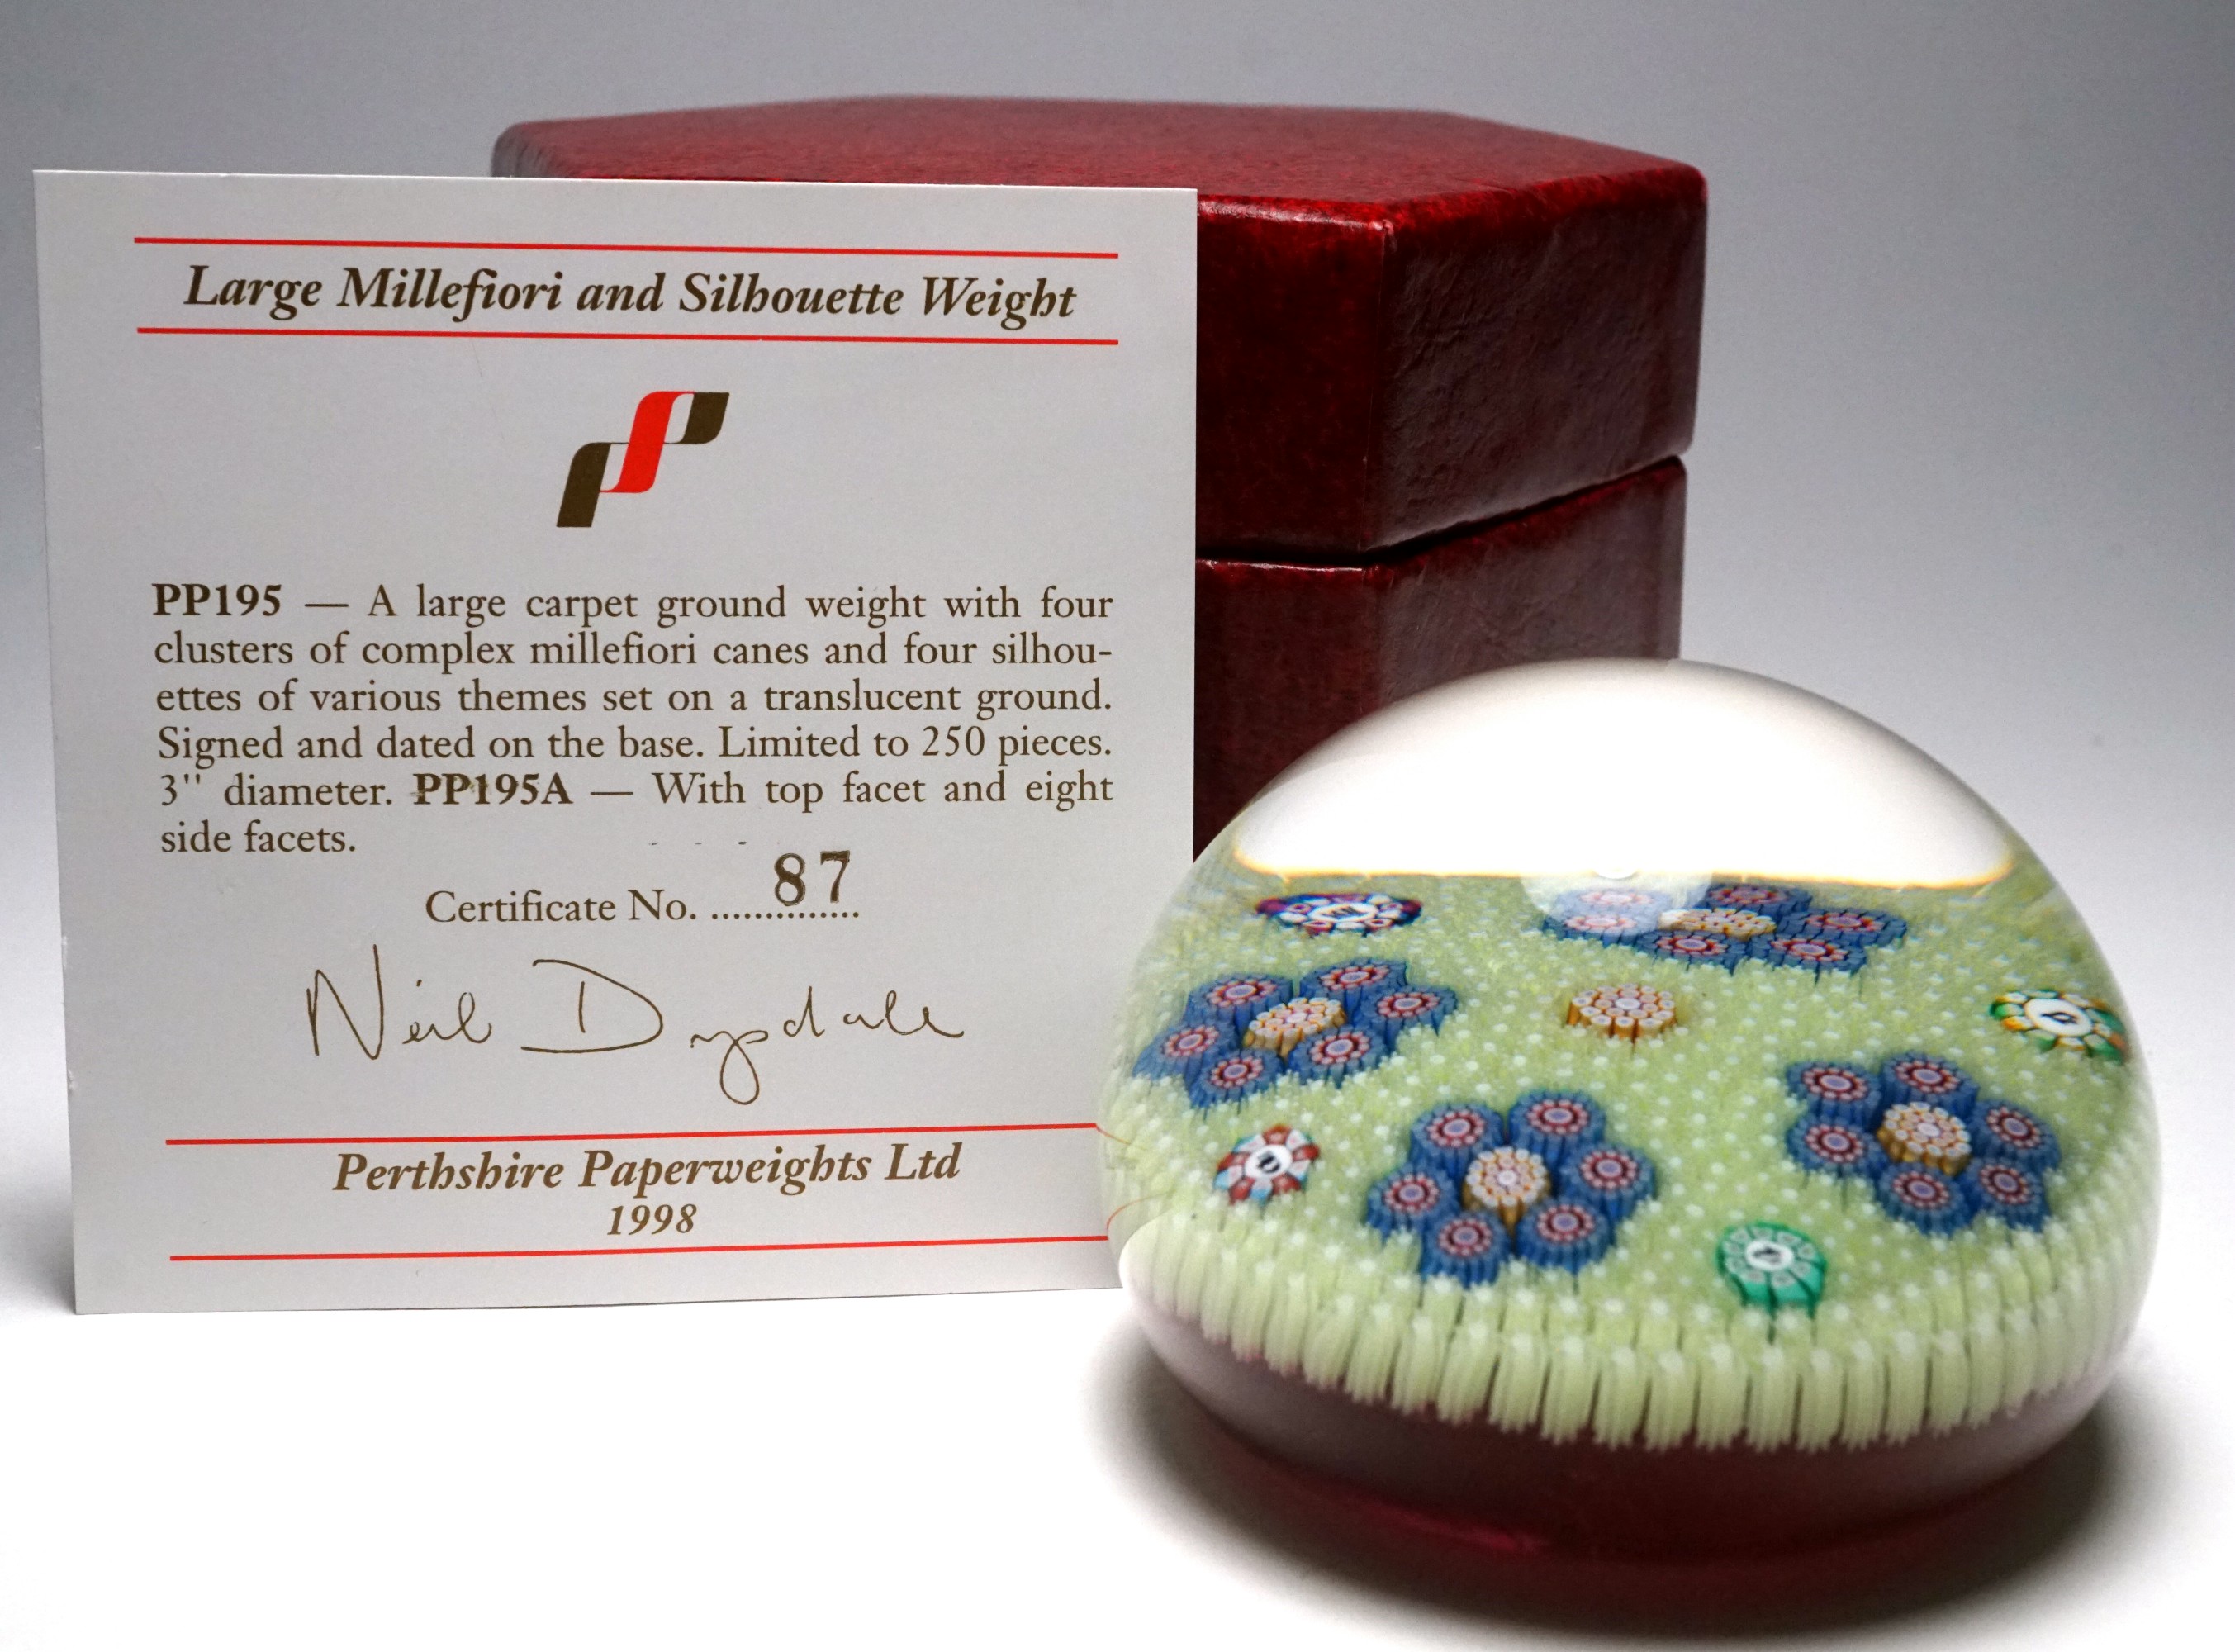 Large Millefiori and Silhouette Weight
PP195 — A large carpet ground weight with four
clusters of complex millefiori canes and four silhou-
ettes of various themes set on a translucent ground.
Signed and dated on the base. Limited to 250 pieces.
3" diameter. PP195A — With top facet and eight
side facets.
Certificate No. ............... 87
Neil Drysdale
Perthshire Paperweights Ltd
1998